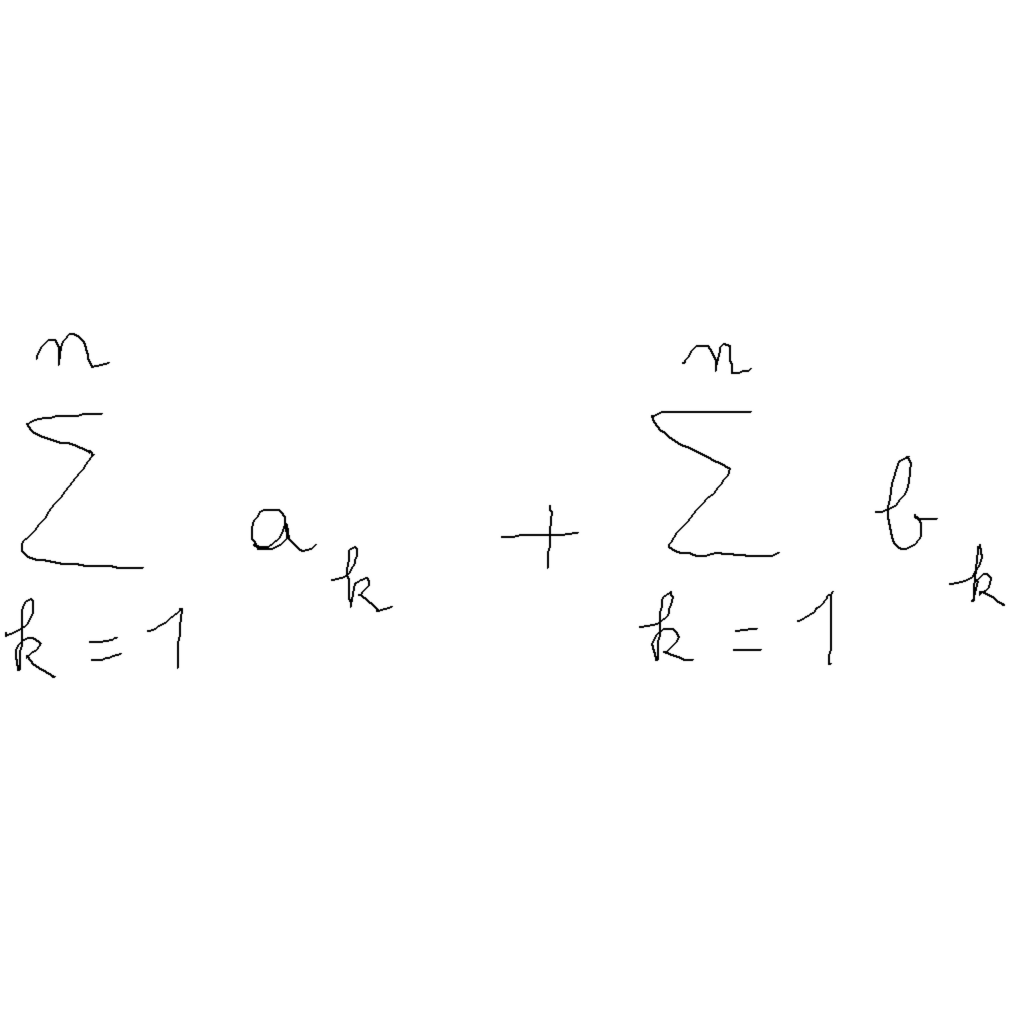 \sum_{k=1}^{n} a_k + \sum_{k=1}^{n} b_k